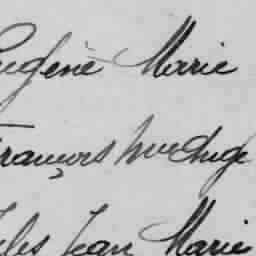 Eugène Marie
François
Jules Jean Marie